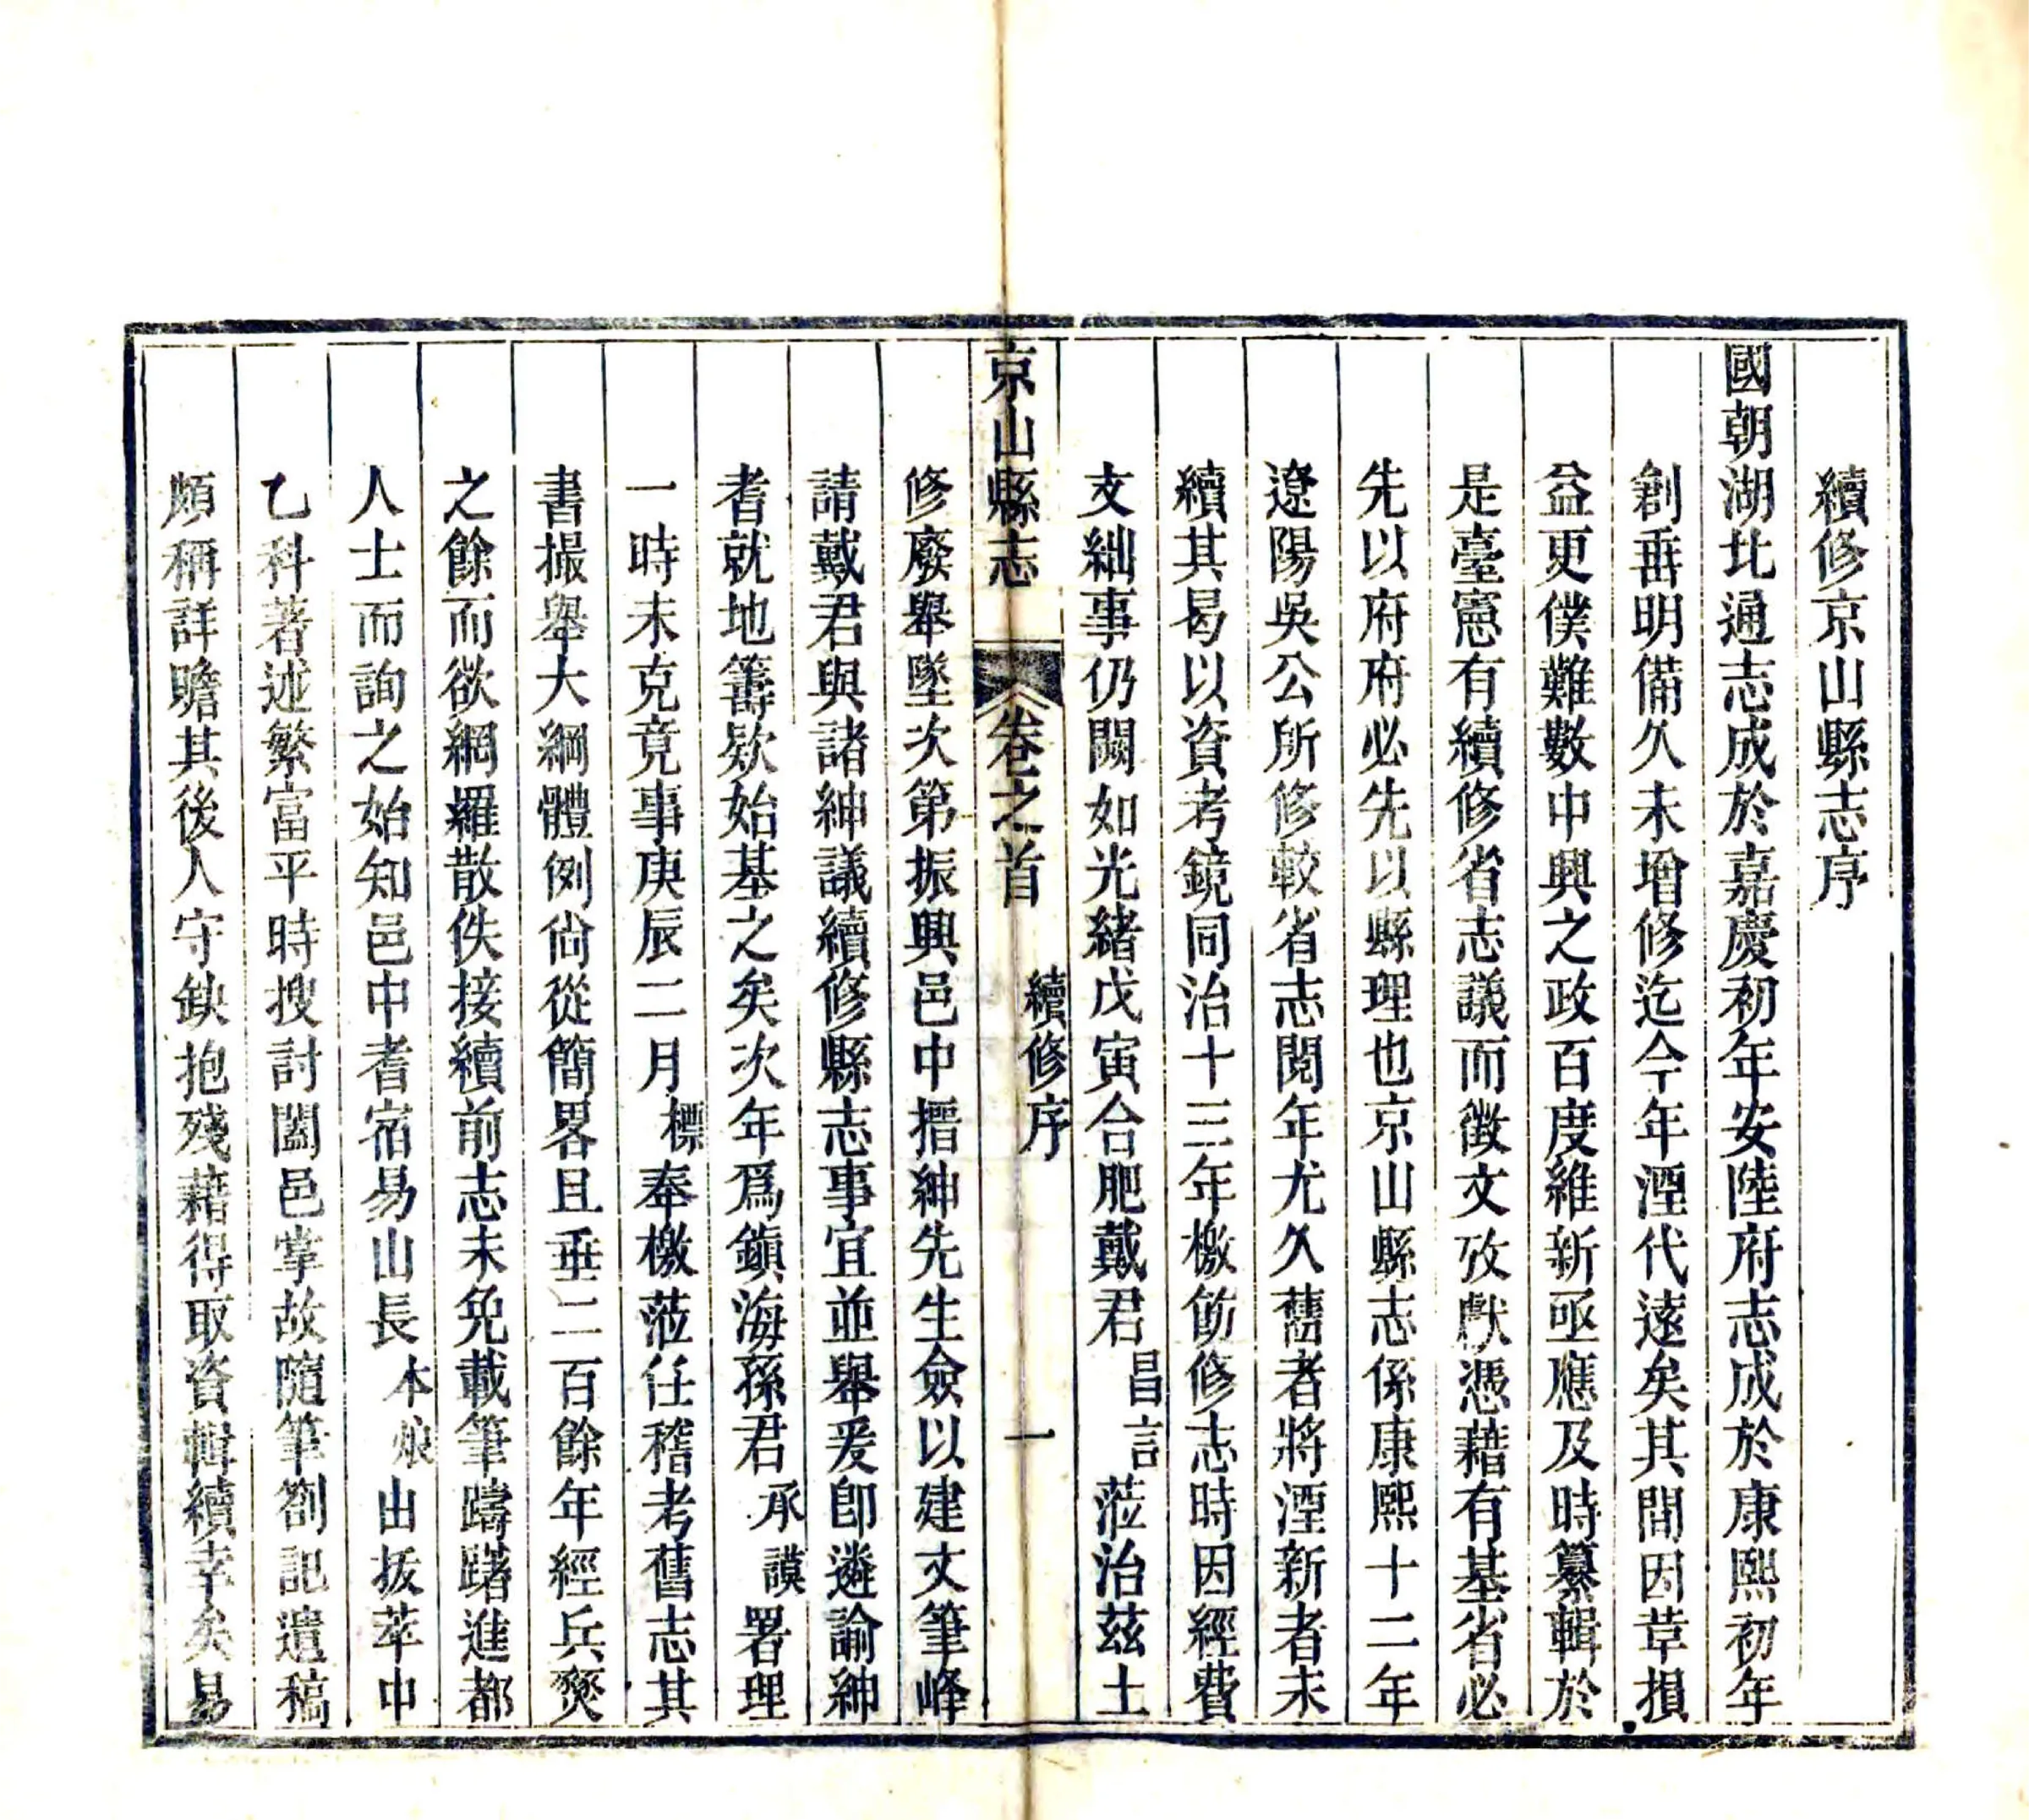 續修京山縣志序
國朝湖北通志成於嘉慶初年安陸府志成於康熙初年
創垂明備久未增修迄今年湮代遠矣其間因革損
益更僕難數中興之政百度維新亟應及時纂輯於
是臺憲有續修省志議而徵文攷獻憑藉有基省必
先以府府必先以縣理也京山縣志係康熙十二年
遼陽吳公所修較省志閱年尤久舊者將湮新者未
續其曷以資考鏡同治十三年檄飭修志時因經費
支絀事仍闕如光緒戊寅合肥戴君昌言蒞治茲土
京山縣志 卷之首 續修序 一
修廢舉墜次第振興邑中搢紳先生僉以建文筆峰
請戴君與諸紳議續修縣志事宜並舉爰卽遴諭紳
耆就地籌欵始基之矣次年爲鎭海孫君承謨署理
一時未克竟事庚辰二月標奉檄蒞任稽考舊志其
書撮舉大綱體例尙從簡畧且垂二百餘年經兵燹
之餘而欲網羅散佚接續前志未免載筆躊躇進都
人士而詢之始知邑中耆宿易山長本烺出拔萃中
乙科著述繁富平時搜討闔邑掌故隨筆劄記遺稿
頗稱詳贍其後人守缺抱殘藉得取資輯續幸矣易